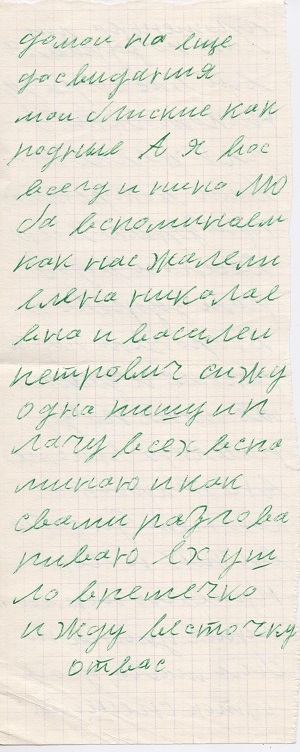 домои на еще
досвидания
мои блиские как
родные А я вас
всегд и нина Лю
ба вспоминаем
как нас жалели
елена николае
вна и василеи
петрович сижу
одна пишу и п
лачу всех вспо
минаю и как
свами разгова
риваю Ех уш
ло времечко
и жду весточку
отвас